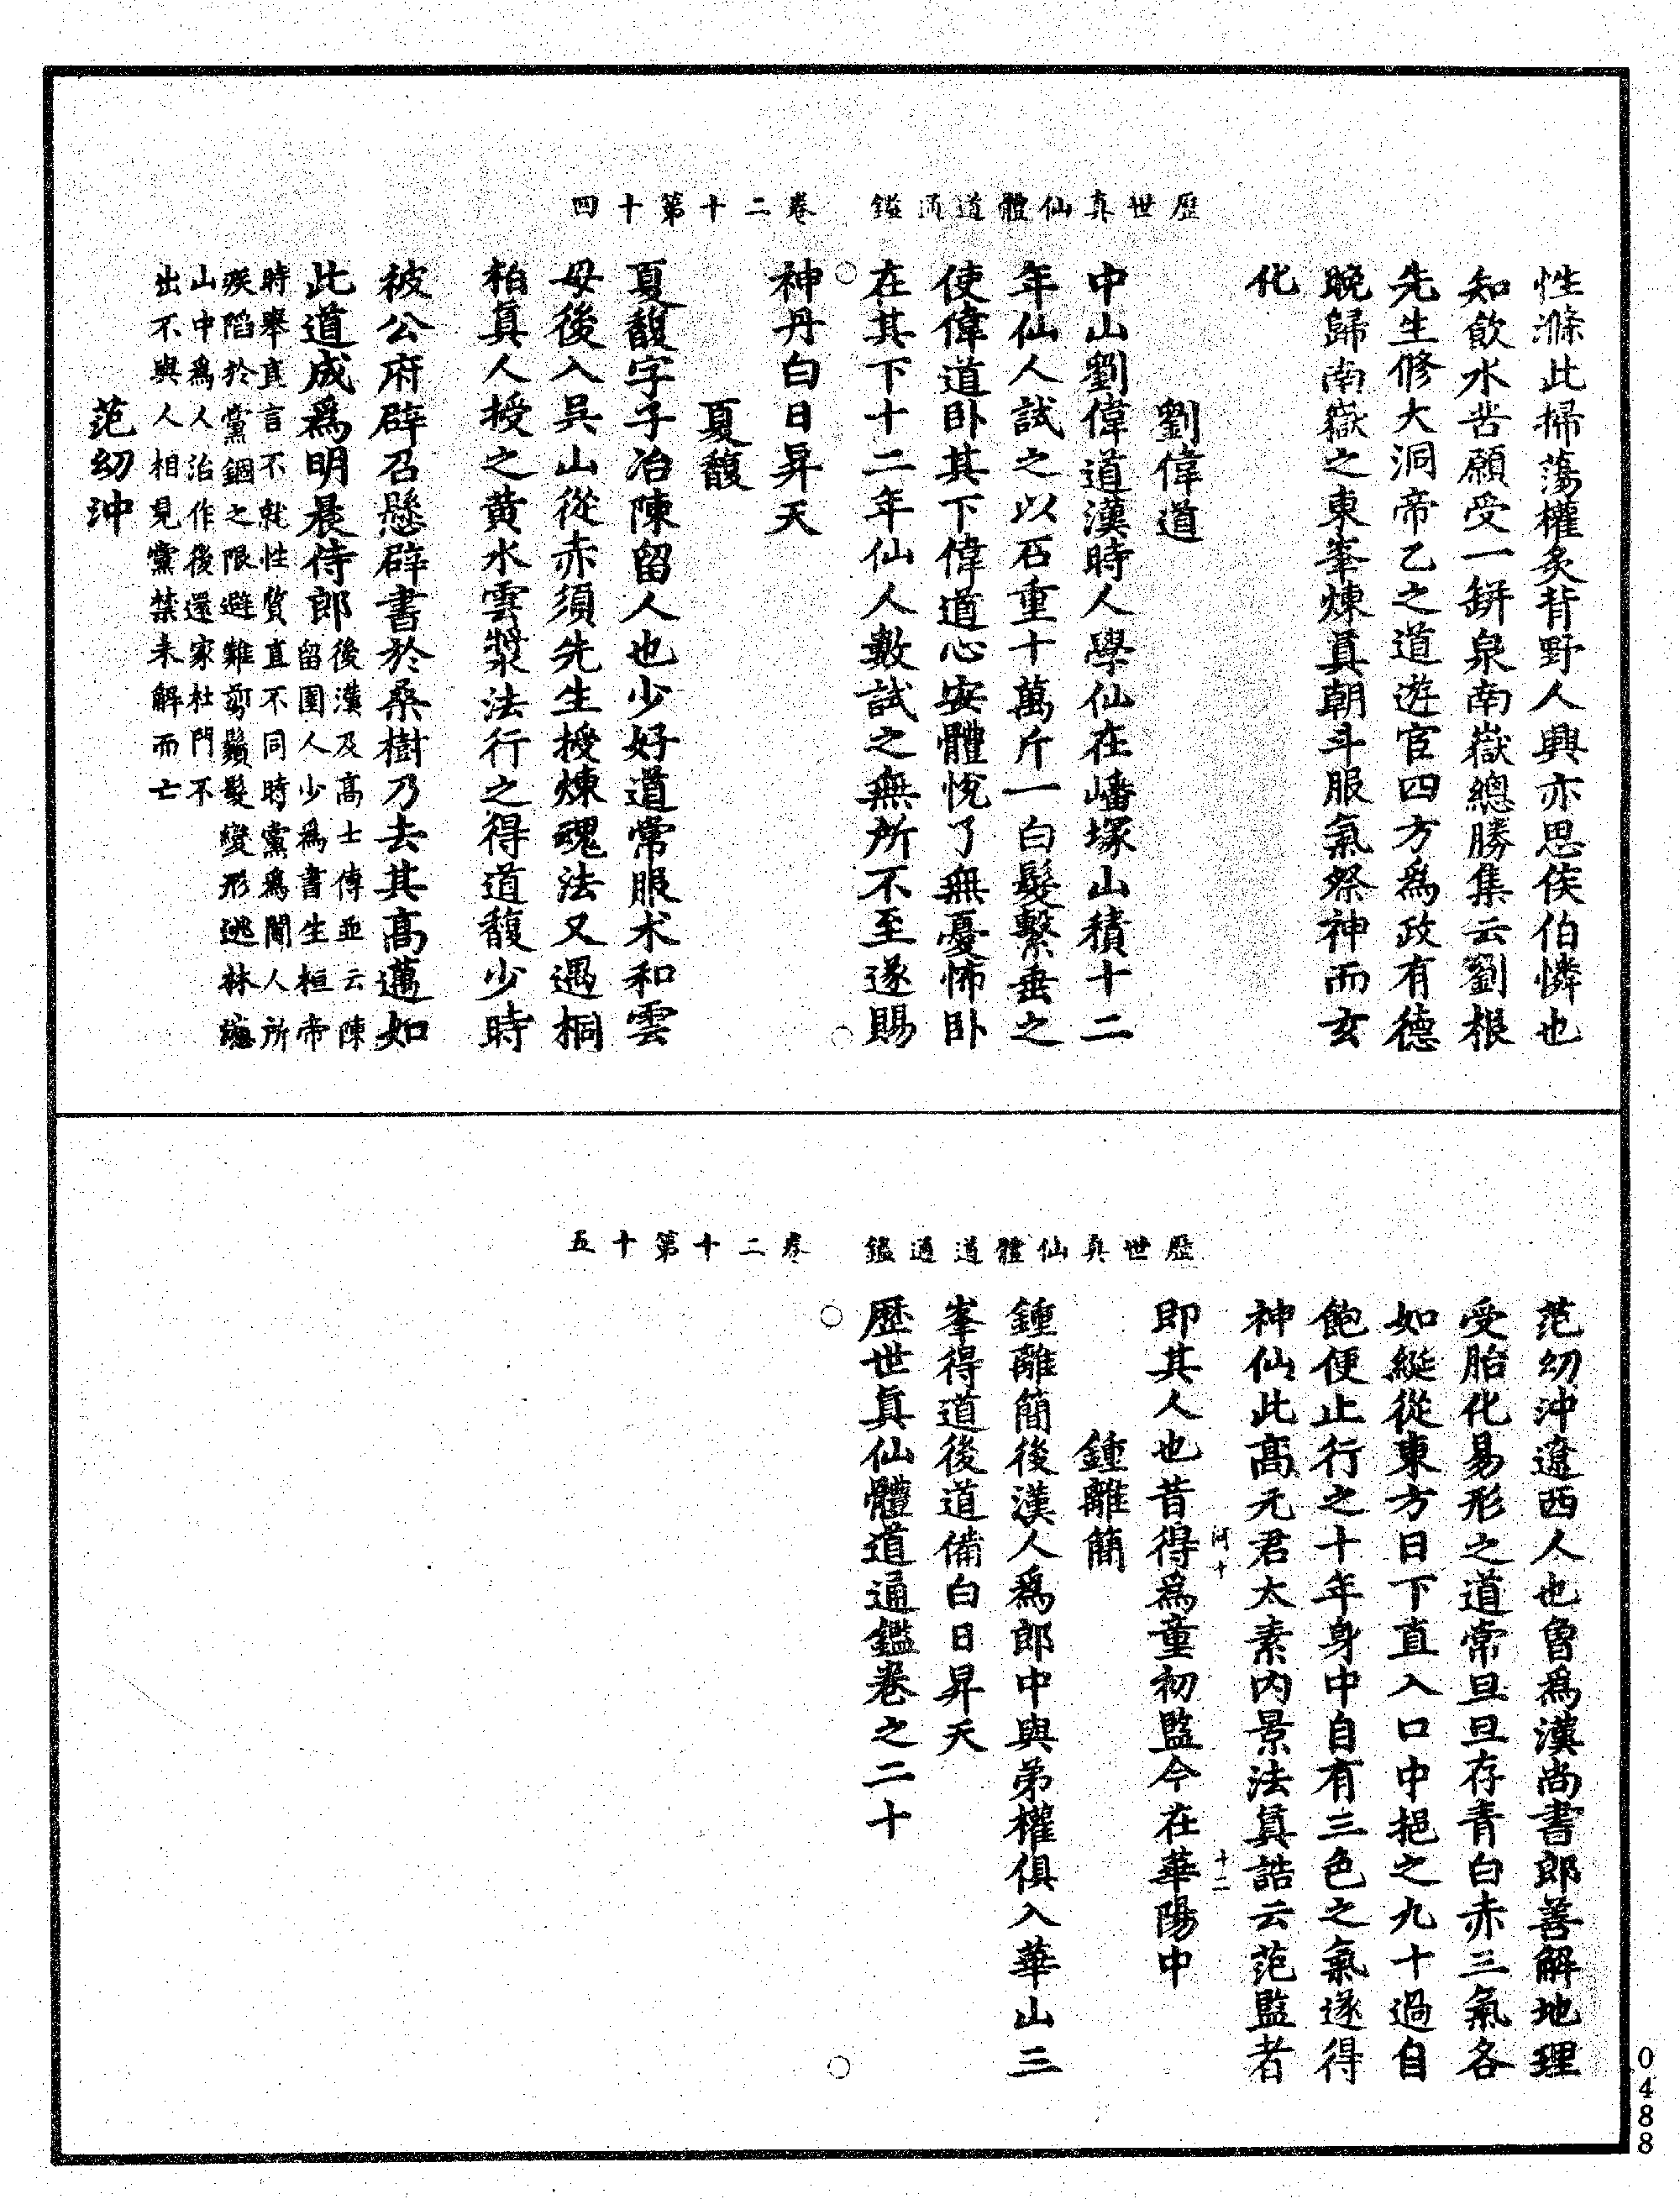 歷世真仙體道通鑑　卷二十第十四
性滌此掃蕩權炙背野人興亦思俟伯憐也
知飲水苦願受一缾泉南嶽總勝集云劉根
先生修大洞帝乙之道遊官四方爲政有德
晚歸南嶽之東峯煉眞朝斗服氣祭神而玄
化
劉偉道
中山劉偉道漢時人學仙在嶓塚山積十二
年仙人試之以石重十萬斤一白髮繫垂之
使偉道卧其下偉道心安體悅了無憂怖卧
在其下十二年仙人數試之無所不至遂賜
神丹白日昇天
夏馥
夏馥字子冶陳留人也少好道常服术和雲
母後入吳山從赤須先生授煉魂法又遇桐
柏眞人授之黃水雲漿法行之得道馥少時
被公府辟召懸辟書於桑樹乃去其高邁如
此道成爲明晨侍郎後漢及高士傳並云陳
留圉人少爲書生桓帝
時舉直言不就性質直不同時黨爲閹人所
疾陷於黨錮之限避難剪鬚髮變形逃林慮
山中爲人治作後還家杜門不
出不與人相見黨禁未解而亡
范幼沖
歷世真仙體道通鑑　卷二十第十五
范幼沖遼西人也魯爲漢尚書郎善解地理
受胎化易形之道常旦旦存青白赤三氣各
如綖從東方日下直入口中挹之九十過自
飽便止行之十年身中自有三色之氣遂得
神仙此高元君太素內景法眞誥云范監者
河十　十二
即其人也昔得爲童初監今在華陽中
鍾離簡
鍾離簡後漢人爲郎中與弟權俱入華山三
峯得道後道備白日昇天
歷世眞仙體道通鑑卷之二十
0488